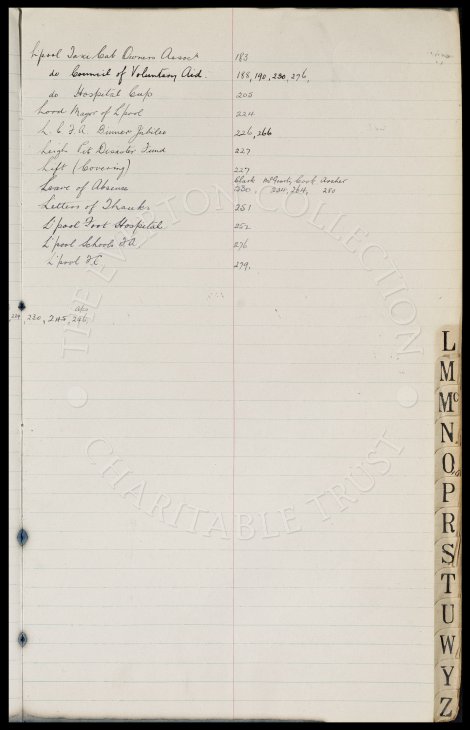 L'pool Taxi Cab Owners Assoc 183
do Council of Voluntary Aid. 188, 190, 230, 276,
do Hospital Cup 205
Lord Mayor of L'pool 224
L. C. F. A. Dinner Jubilee 226, 266
Leigh Pit Disaster Fund 227
Lift (Covering) 227
Clark McGrorty Cook Archer
Leave of Absence 230, 234, 264, 280
Letters of Thanks 251
L'pool Foot Hospital 252
L'pool Schools F.A. 276
L'pool F.C 279.
230, 245, 246
THE EVERTON COLLECTION
CHARITABLE TRUST
L
M
Mc
N
O
P
R
S
T
U
W
Y
Z